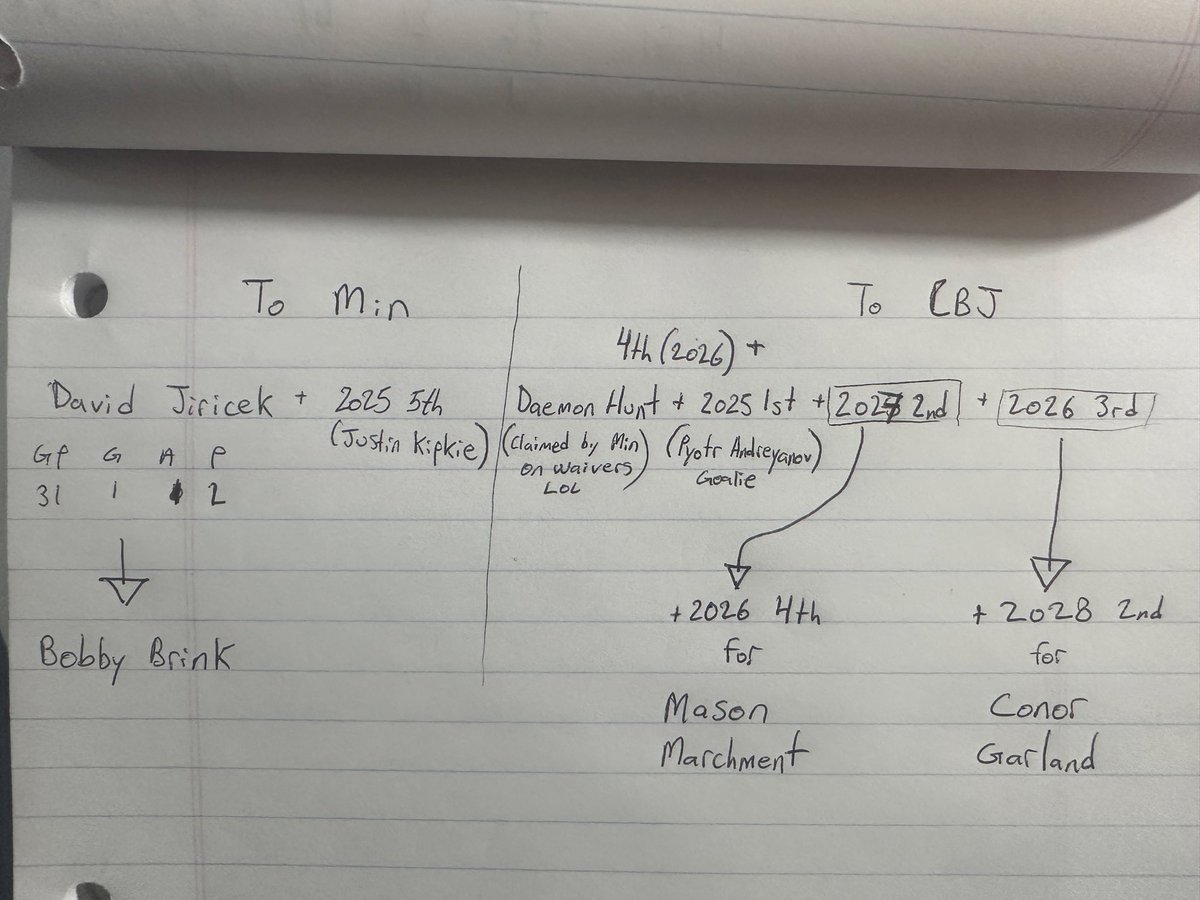 To Min
David Jiricek + 2025 5th
(Justin Kipkie)
GP G A P
31 1 1 2
Bobby Brink
To CBJ
4th (2026) +
Daemon Hunt + 2025 1st + 2027 2nd + 2026 3rd
(Claimed by Min
on waivers
LOL)
(Pyotr Andreyanov)
Goalie
+2026 4th
for
Mason
Marchment
+ 2028 2nd
for
Conor
Garland